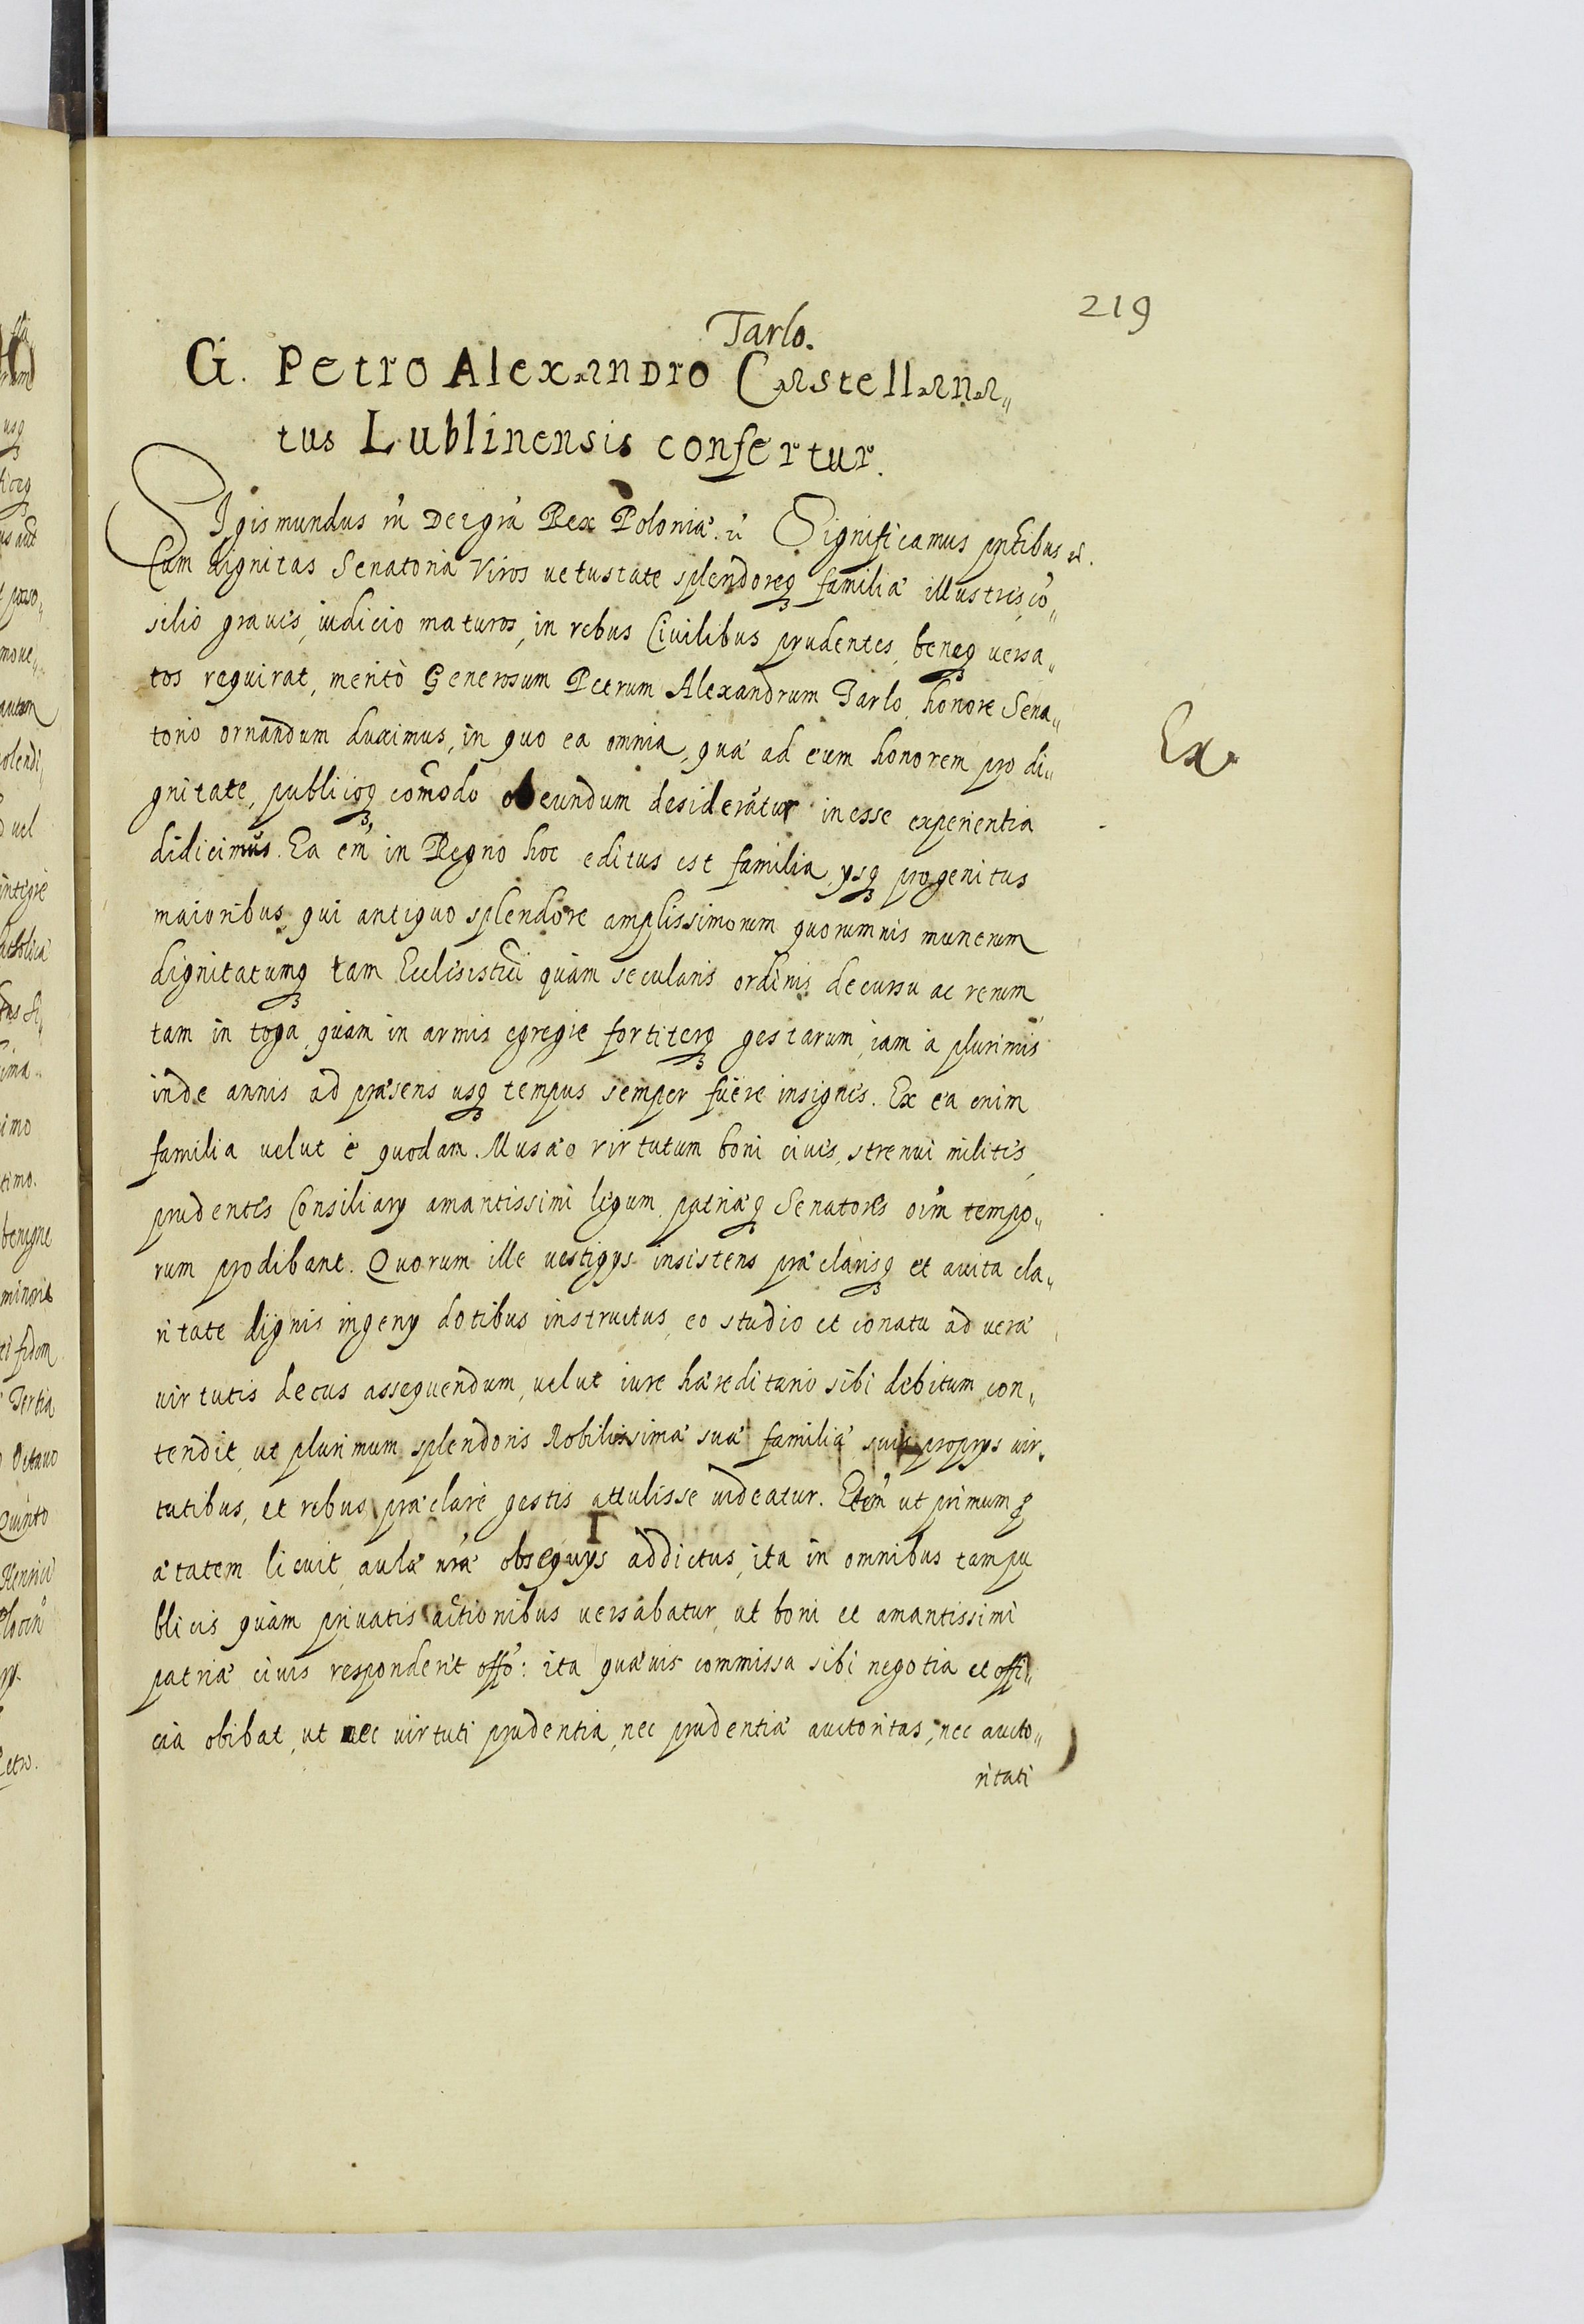 219
Tarlo.
G. Petro Alexandro Castellana„
tus Lublinensis confertur.
Sigismundus III Dei grã Rex Poloniæ. &c Significamus pñtibus &c.
Cum dignitas Senatoria Viros uetustate splendoreq₃ familiæ illustres, cõ„
silio graues, iudicio maturos, in rebus Ciuilibus prudentes, beneq₃ uersa„
tos requirat, meritò Generosum Petrum Alexandrum Tarlo, honore Sena„
torio ornandum duximus, in quo ea omnia, quæ ad eum honorem pro di„
gnitate, publicoq₃ com̃odo obeundum desiderãtur inesse experientia
didicimus. Ea em̃ in Regno hoc editus est familia, ysq₃ progenitus
maioribus, qui antiquo splendore amplissimorum quorumuis munerum
dignitatumq₃ tam Ecclesistici quàm secularis ordinis decursu ac rerum
tam in toga, quàm in armis egregie fortiterq₃ gestarum, iam à plurimis
inde annis ad præsens usq₃ tempus semper fuêre insignes. Ex ea enim
familia uelut è quodam Musæo virtutum boni ciues, strenui milites,
prudentes Consiliary amantissimi legum, patriæq₃ Senatores oĩm tempo„
rum prodibant. Quorum ille uestigys insistens præclarisq₃ et auita cla„
ritate dignis ingeny dotibus instructus, eo studio et conatu ad ueræ
uirtutis decus assequendum, uelut iure hæreditario sibi debitum, con„
tendit, ut plurimum splendoris Nobilissimæ suæ familiæ suis proprys uir„
tutibus, et rebus præclarè gestis attulisse uideatur. Etem̃ ut primum ꝑ
ætatem licuit, aulæ nr̃æ obsequys addictus, ita in omnibus tam pu
blicis quàm priuatis actionibus uersabatur, ut boni et amantissimi
patriæ ciuis responderit offõ: ita quæuis commissa sibi negotia et offi„
cia obibat, ut nec uirtuti prudentia, nec prudentiæ auctoritas, nec aucto„
ritati
Ex